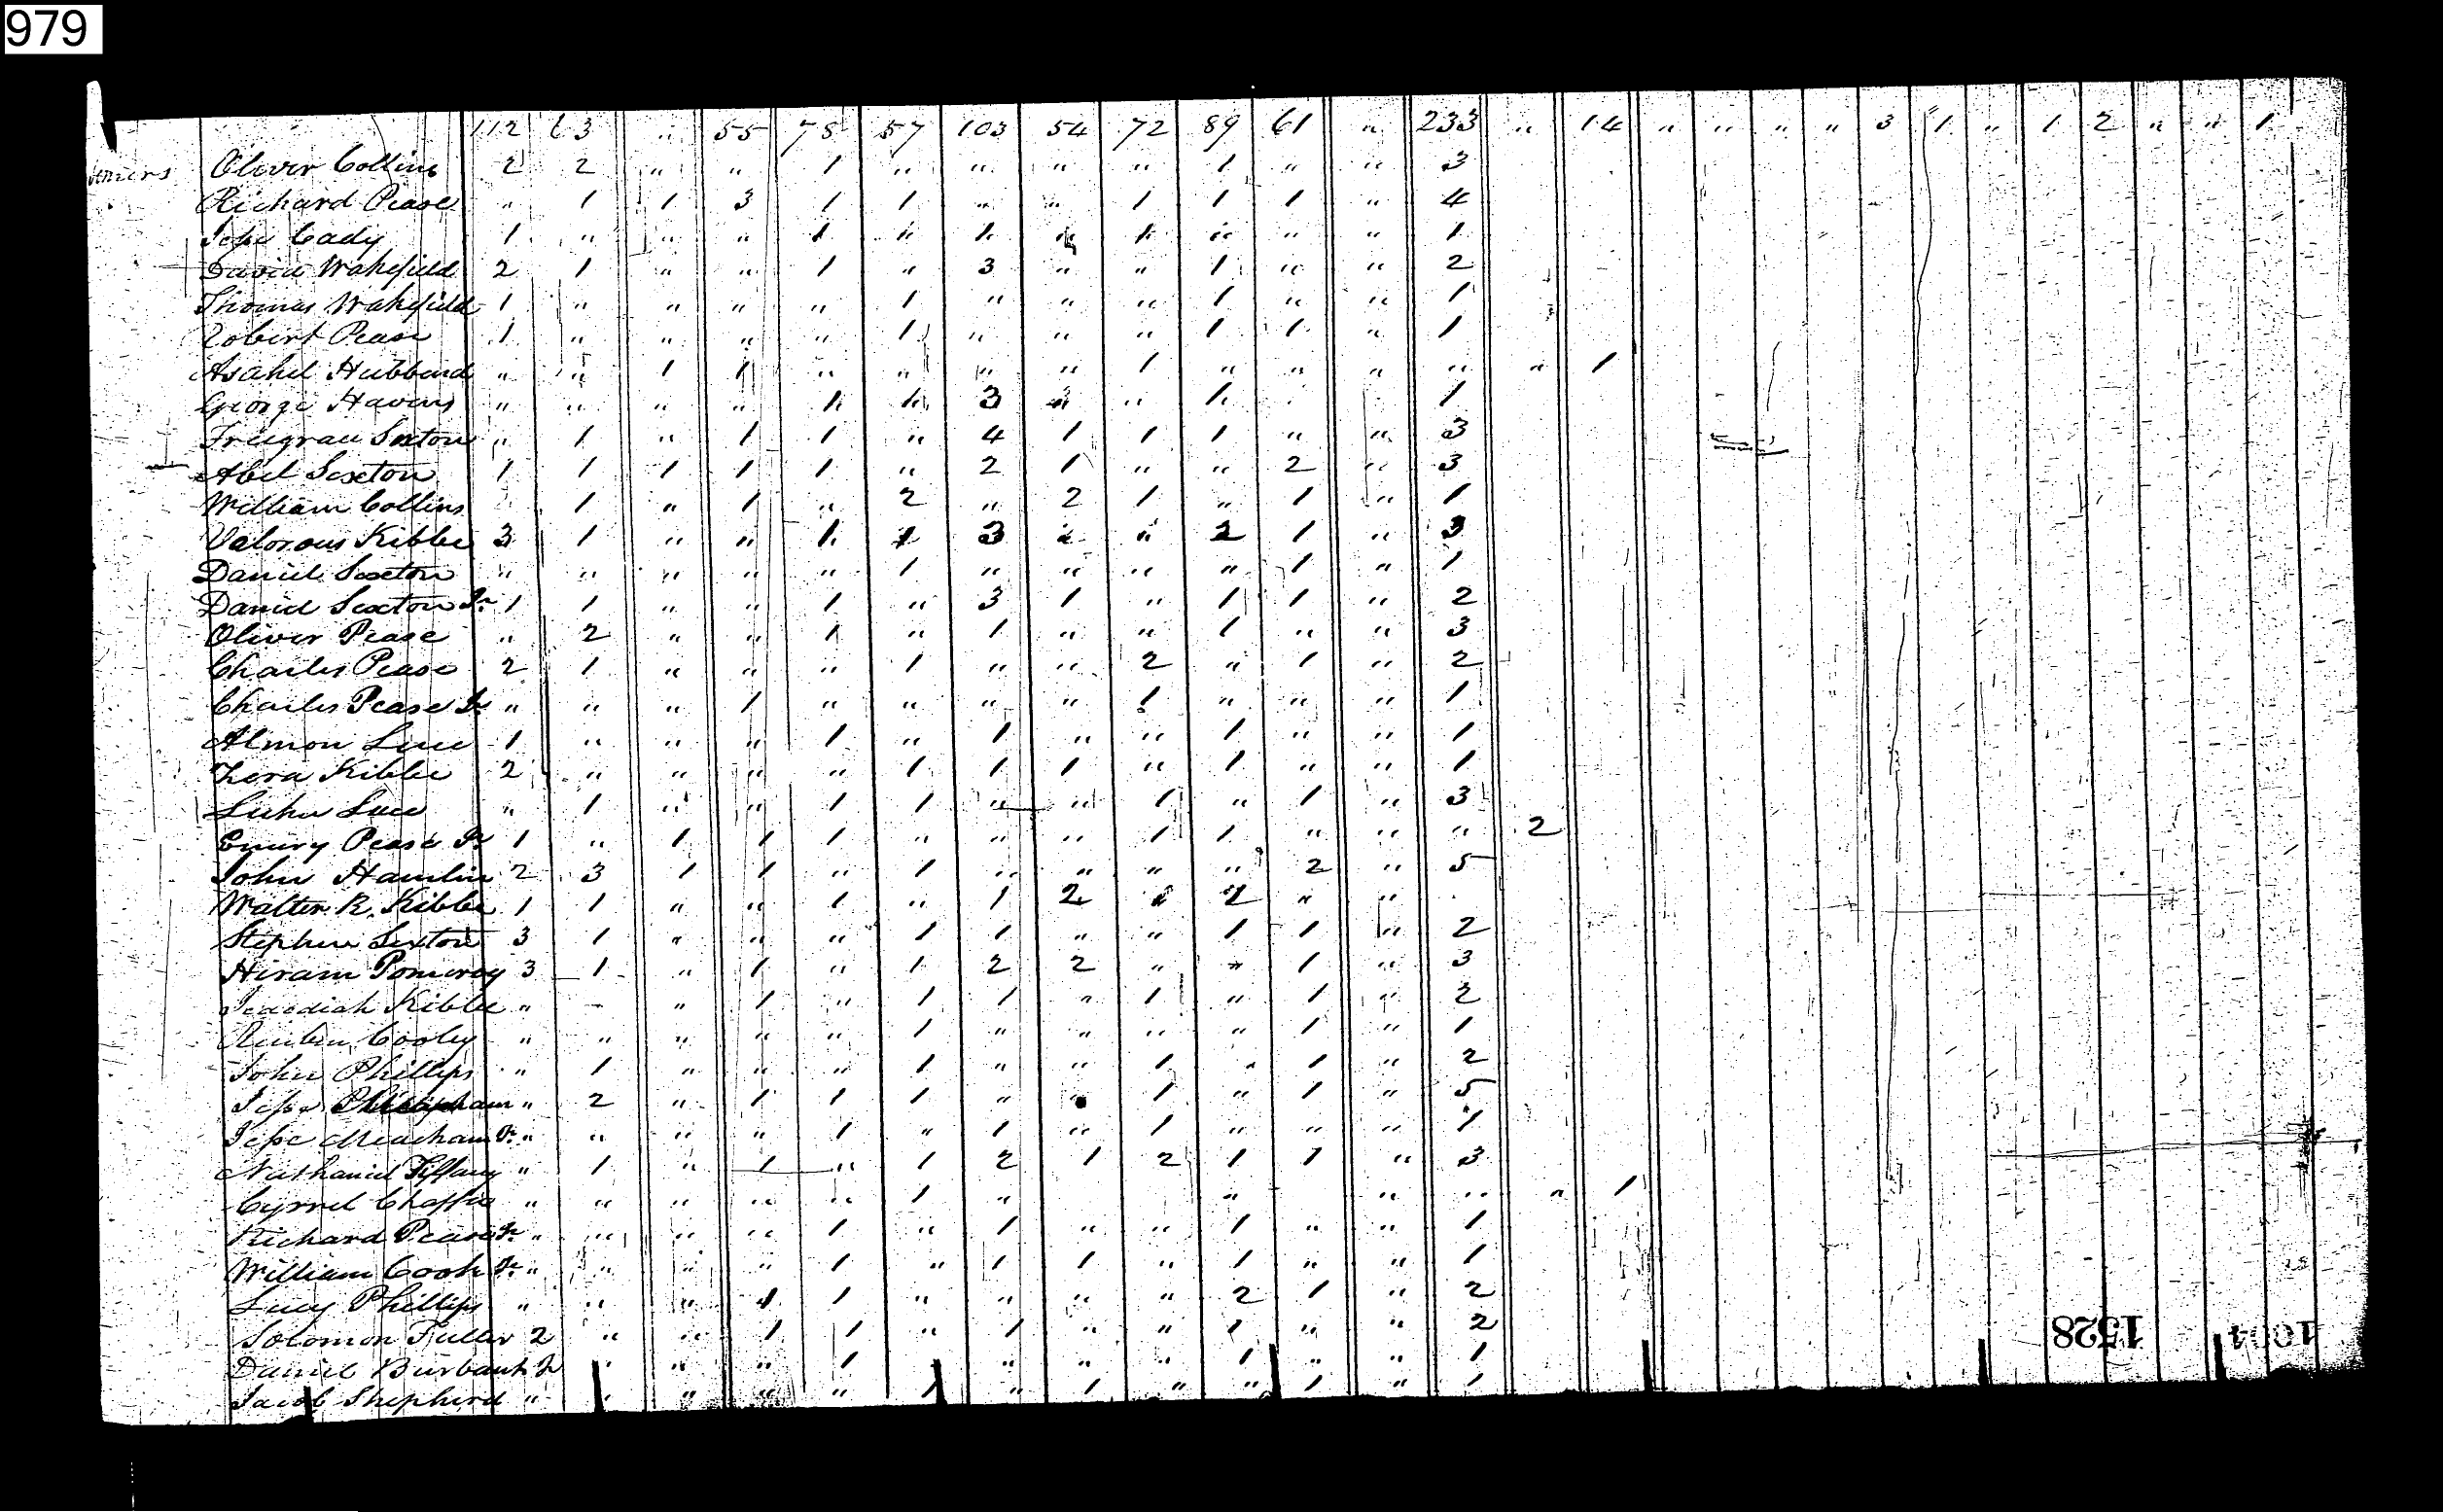 979
112 63 " 55 78 57 103 54 72 89 61 " 233 " 14 " " " " 3 1 " 1 2 " " 1
Oliver Collins 2 2 " " 1 " " " " 1 " " 3
Richard Pease " 1 1 3 1 1 " " 1 1 1 " 4
Jesse Cady 1 " " " 1 " 1 " 1 " " " 1
David Wakefield 2 1 " " 1 " 3 " " 1 " " 2
Thomas Wakefield 1 " " " " 1 " " " 1 " " 1
Robert Pease 1 " " " " 1 " " " 1 1 " 1
Asahel Hubbard " " 1 1 " " " " 1 " " " " " 1
George Havens " " " " 1 1 3 " 1 1
Sexton " 1 " 1 1 " 4 1 1 1 " " 3
Abel Sexton 1 1 1 1 1 " 2 1 " " 2 " 3
William Collins 1 " 1 " 2 " 2 1 " 1 " 1
Valorous Kibbe 3 1 " " 1 1 3 " " 2 1 " 3
Daniel Sexton " " " " " 1 " " " " 1 " 1
Daniel Sexton Jr 1 1 " " 1 " 3 1 " 1 1 " 2
Oliver Pease " 2 " " 1 " 1 " " 1 " " 3
Charles Pease 2 1 " " " 1 " " 2 " 1 " 2
Charles Pease Jr " " " 1 " " " " 1 " " " 1
Almon Luce 1 " " " 1 " 1 " " 1 " " 1
Zera Kibbe 2 " " " " 1 1 1 " 1 " " 1
Luce " 1 " " 1 1 " " 1 " 1 " 3
Emery Pease Jr 1 " 1 1 1 " " " 1 1 " " " 2
John Hamlin 2 3 1 1 " 1 " " " " 2 " 5
Walter R. Kibbe 1 1 " " 1 " 1 2 2 " "
Stephen Sexton 3 1 " " " 1 1 " " 1 1 " 2
Hiram Pomeroy 3 1 " 1 " 1 2 2 " " 1 " 3
Kibbe " - " 1 " 1 1 " 1 " 1 " 2
Reuben Cooley " " " " " 1 " " " " 1 " 1
John Phillips " 1 " " " 1 " " 1 " 1 " 2
Jesse " 2 " 1 1 1 " " 1 " 1 " 5
Jesse Meacham Jr " " " " 1 " 1 " 1 " " " 1
Nathaniel Tiffany " 1 " 1 " 1 2 1 2 1 1 " 3
Chaffee " " " " " 1 " " " " " 1
Richard Pease Jr " " " " 1 " 1 " " 1 " " 1
William Cook Jr " " " " 1 " 1 1 " 1 " " 1
Lucy Phillips " " " 1 1 " " " " 2 1 " 2
Solomon Fuller 2 " " 1 1 " 1 " " 1 " " 2
Daniel Burbank " " " 1 " " " 1 " " 1
Jacob Shepherd " " " " " 1 " 1 " " 1 " 1
1528